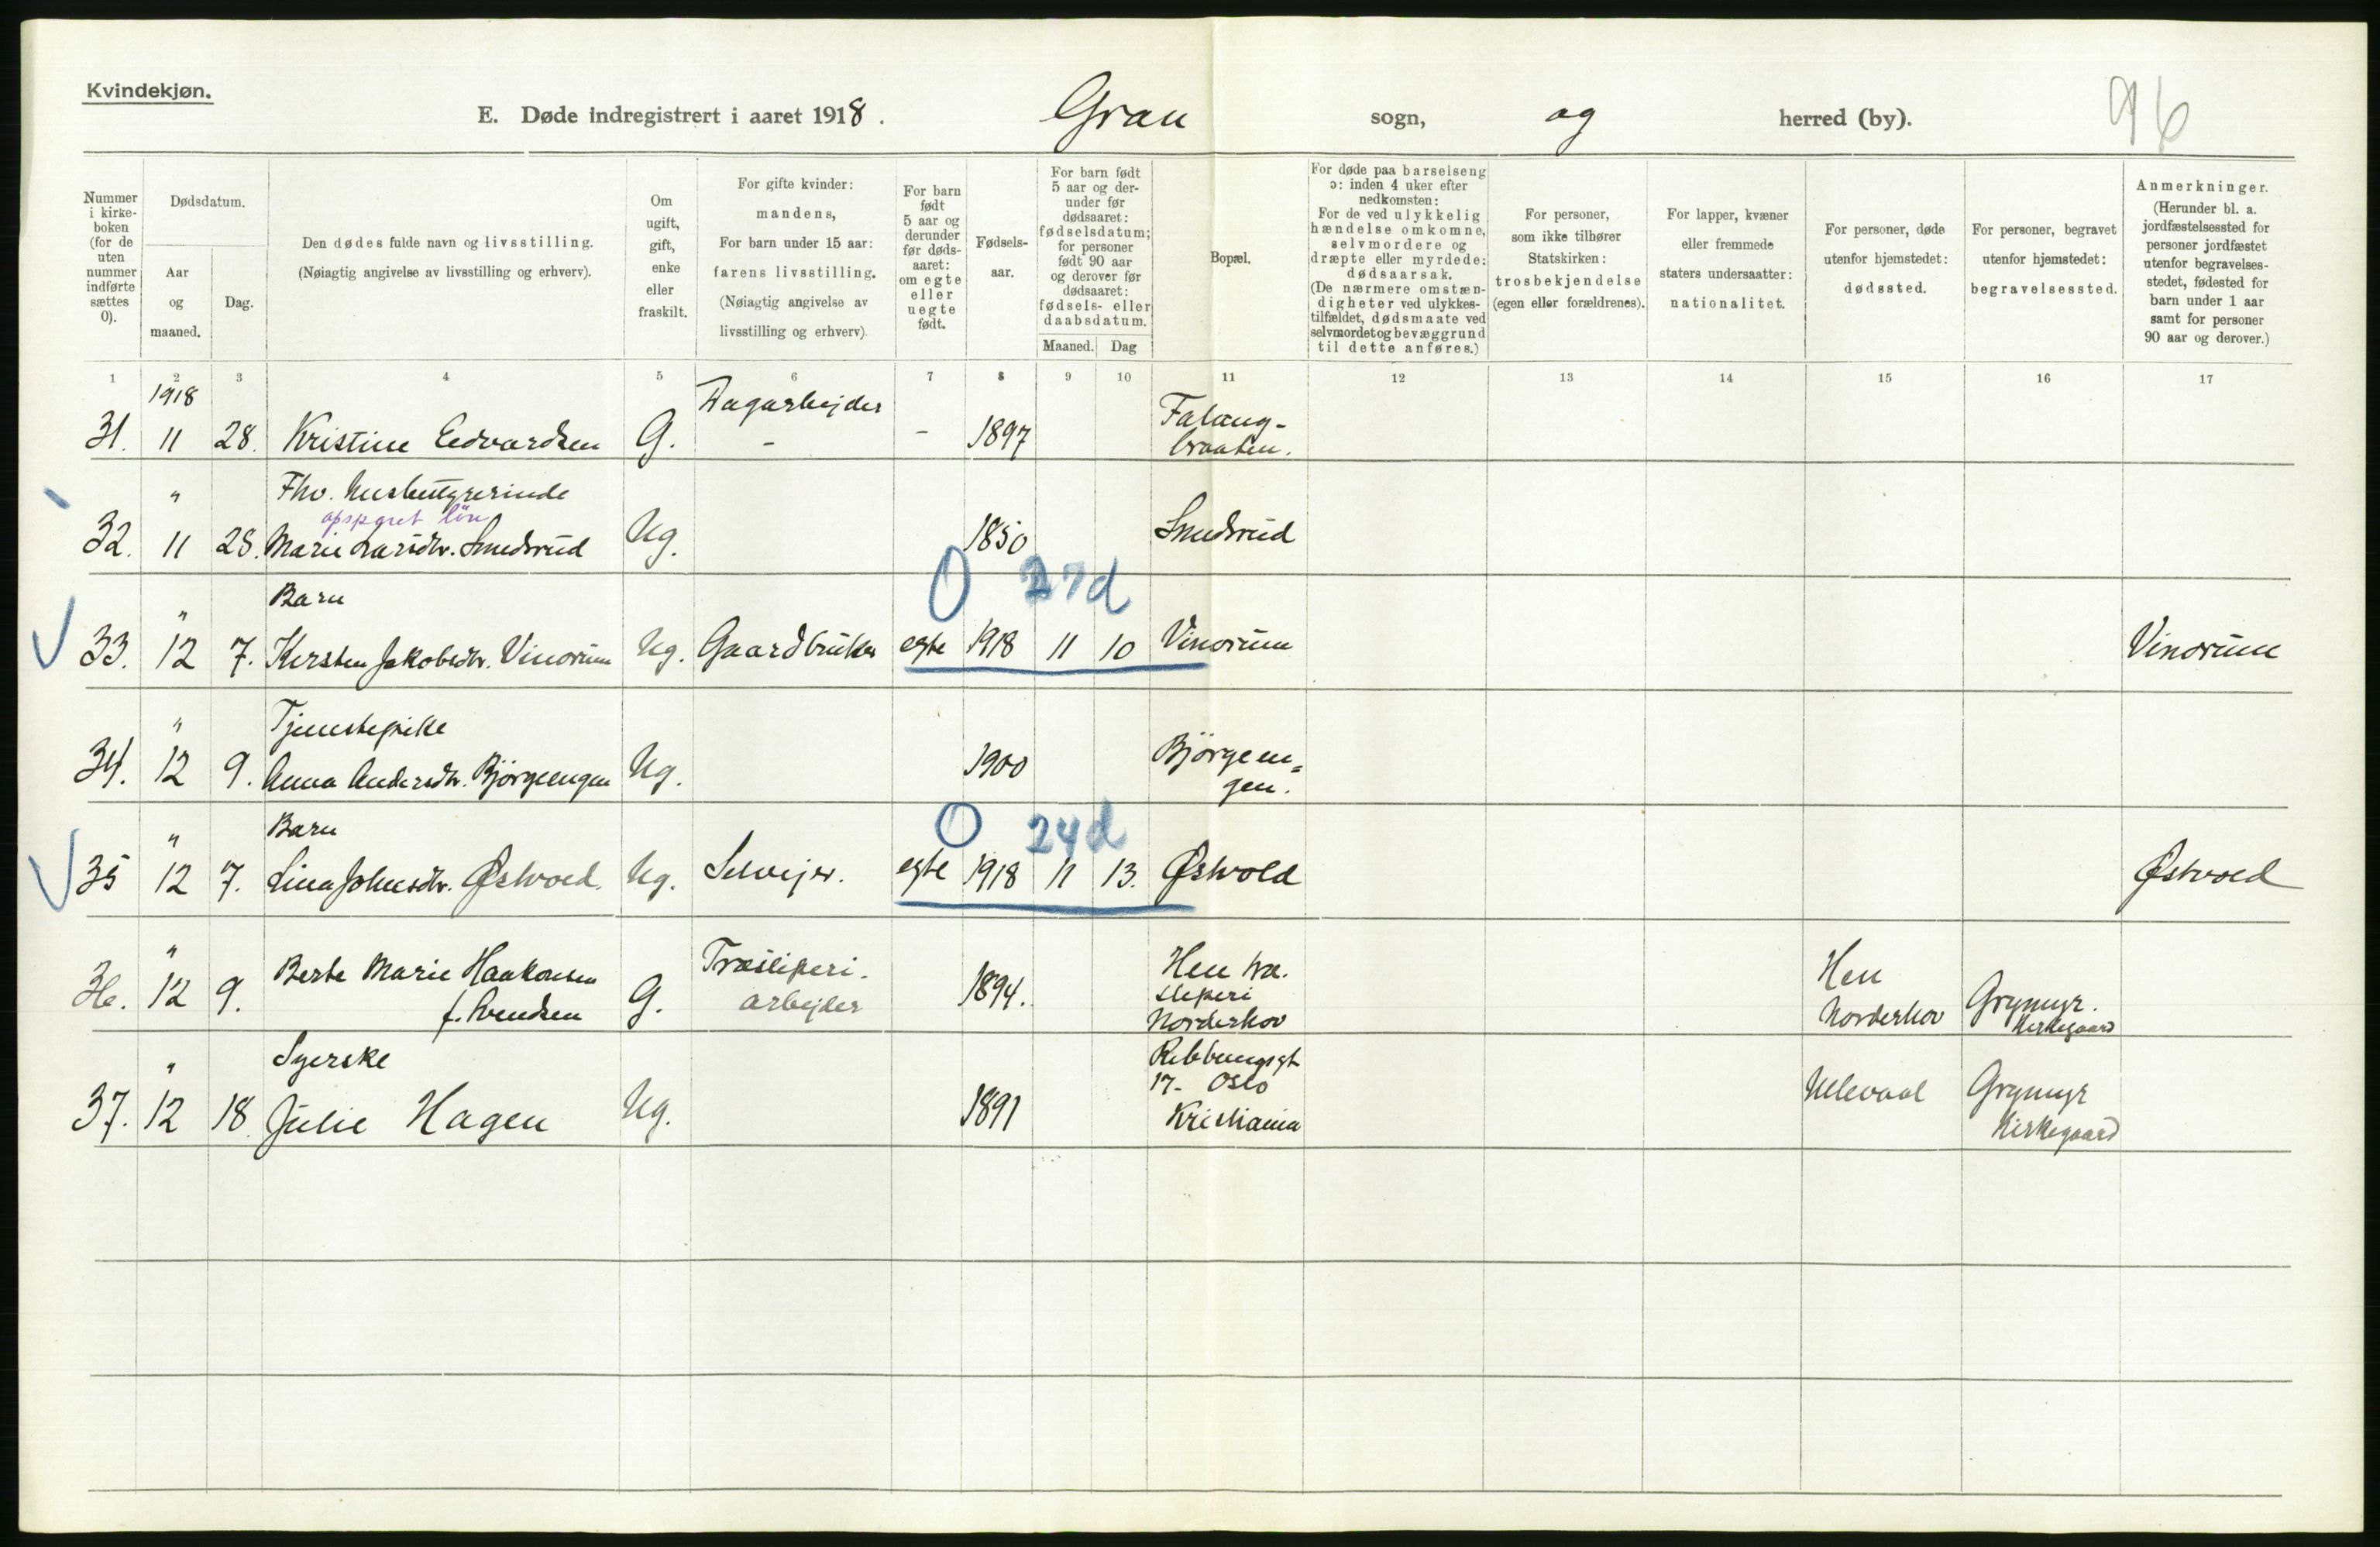 Kvindekjøn.
E. Døde indregistrert i aaret 1918. Gran sogn, og herred (by). 96
Nummer i kirke-boken (for de uten nummer indførte sættes 0).
Dødsdatum.
Aar og maaned.
Dag.
Den dødes fulde navn og livsstilling.
(Nøiagtig angivelse av livsstilling og erhverv).
Om ugift, gift, enke eller fraskilt.
For gifte kvinder: mandens,
For barn under 15 aar: farens livsstilling.
(Nøiagtig angivelse av livsstilling og erhverv).
For barn født 5 aar og derunder før døds-aaret: om egte eller uegte født.
Fødsels-aar.
For barn født 5 aar og der-under før dødsaaret: fødselsdatum; for personer født 90 aar og derover før dødsaaret: fødsels- eller daabsdatum.
Maaned. Dag
Bopæl.
For døde paa barselseng ɔ: inden 4 uker efter nedkomsten:
For de ved ulykkelig hændelse omkomne, selvmordere og dræpte eller myrdede: dødsaarsak.
(De nærmere omstæn-digheter ved ulykkes-tilfældet, dødsmaate ved selvmordet og bevæggrund til dette anføres.)
For personer, som ikke tilhører Statskirken: trosbekjendelse (egen eller forældrenes).
For lapper, kvæner eller fremmede staters undersaatter: nationalitet.
For personer, døde utenfor hjemstedet: dødssted.
For personer, begravet utenfor hjemstedet: begravelsessted.
Anmerkninger.
(Herunder bl. a. jordfæstelsessted for personer jordfæstet utenfor begravelses-stedet, fødested for barn under 1 aar samt for personer 90 aar og derover.)
1 2 3 4 5 6 7 8 9 10 11 12 13 14 15 16 17
1918 Dagarbejder Falang-
31. 11 28. Kristine Edvardsen G. - - 1897 braaten.
" Fhv. husbestyrerinde
opsparet løn
32. 11 28. Marie Larsdtr. Smedsrud Ug. 1850 Smedsrud
Barn 0 27d
33. " 12 7. Kersten Jakobsdtr. Vinorum Ug. Gaardbruker egte 1918 11 10 Vinorum Vinorum
" Tjenestepike Bjørgeen=
34. 12 9. Anna Andersdtr. Bjørgeengen Ug. 1900 gen.
" Barn 0 24d
35 12 7. Lina Johnsdtr. Østvold. Ug. Selvejer. egte 1918 11 13. Østvold Østvold
" Berte Marie Haakonsen Træsliperi- Hen træ- Hen
36. 12 9. f. Svendsen G. arbejder 1894. sliperi Norderhov Norderhov Grymyr. Kirkegaard
" Syerske Ribbungsgt. 17- Oslo
37. 12 18. Julie Hagen Ug. 1891 Kristiania Ullevaal Grymyr Kirkegaard